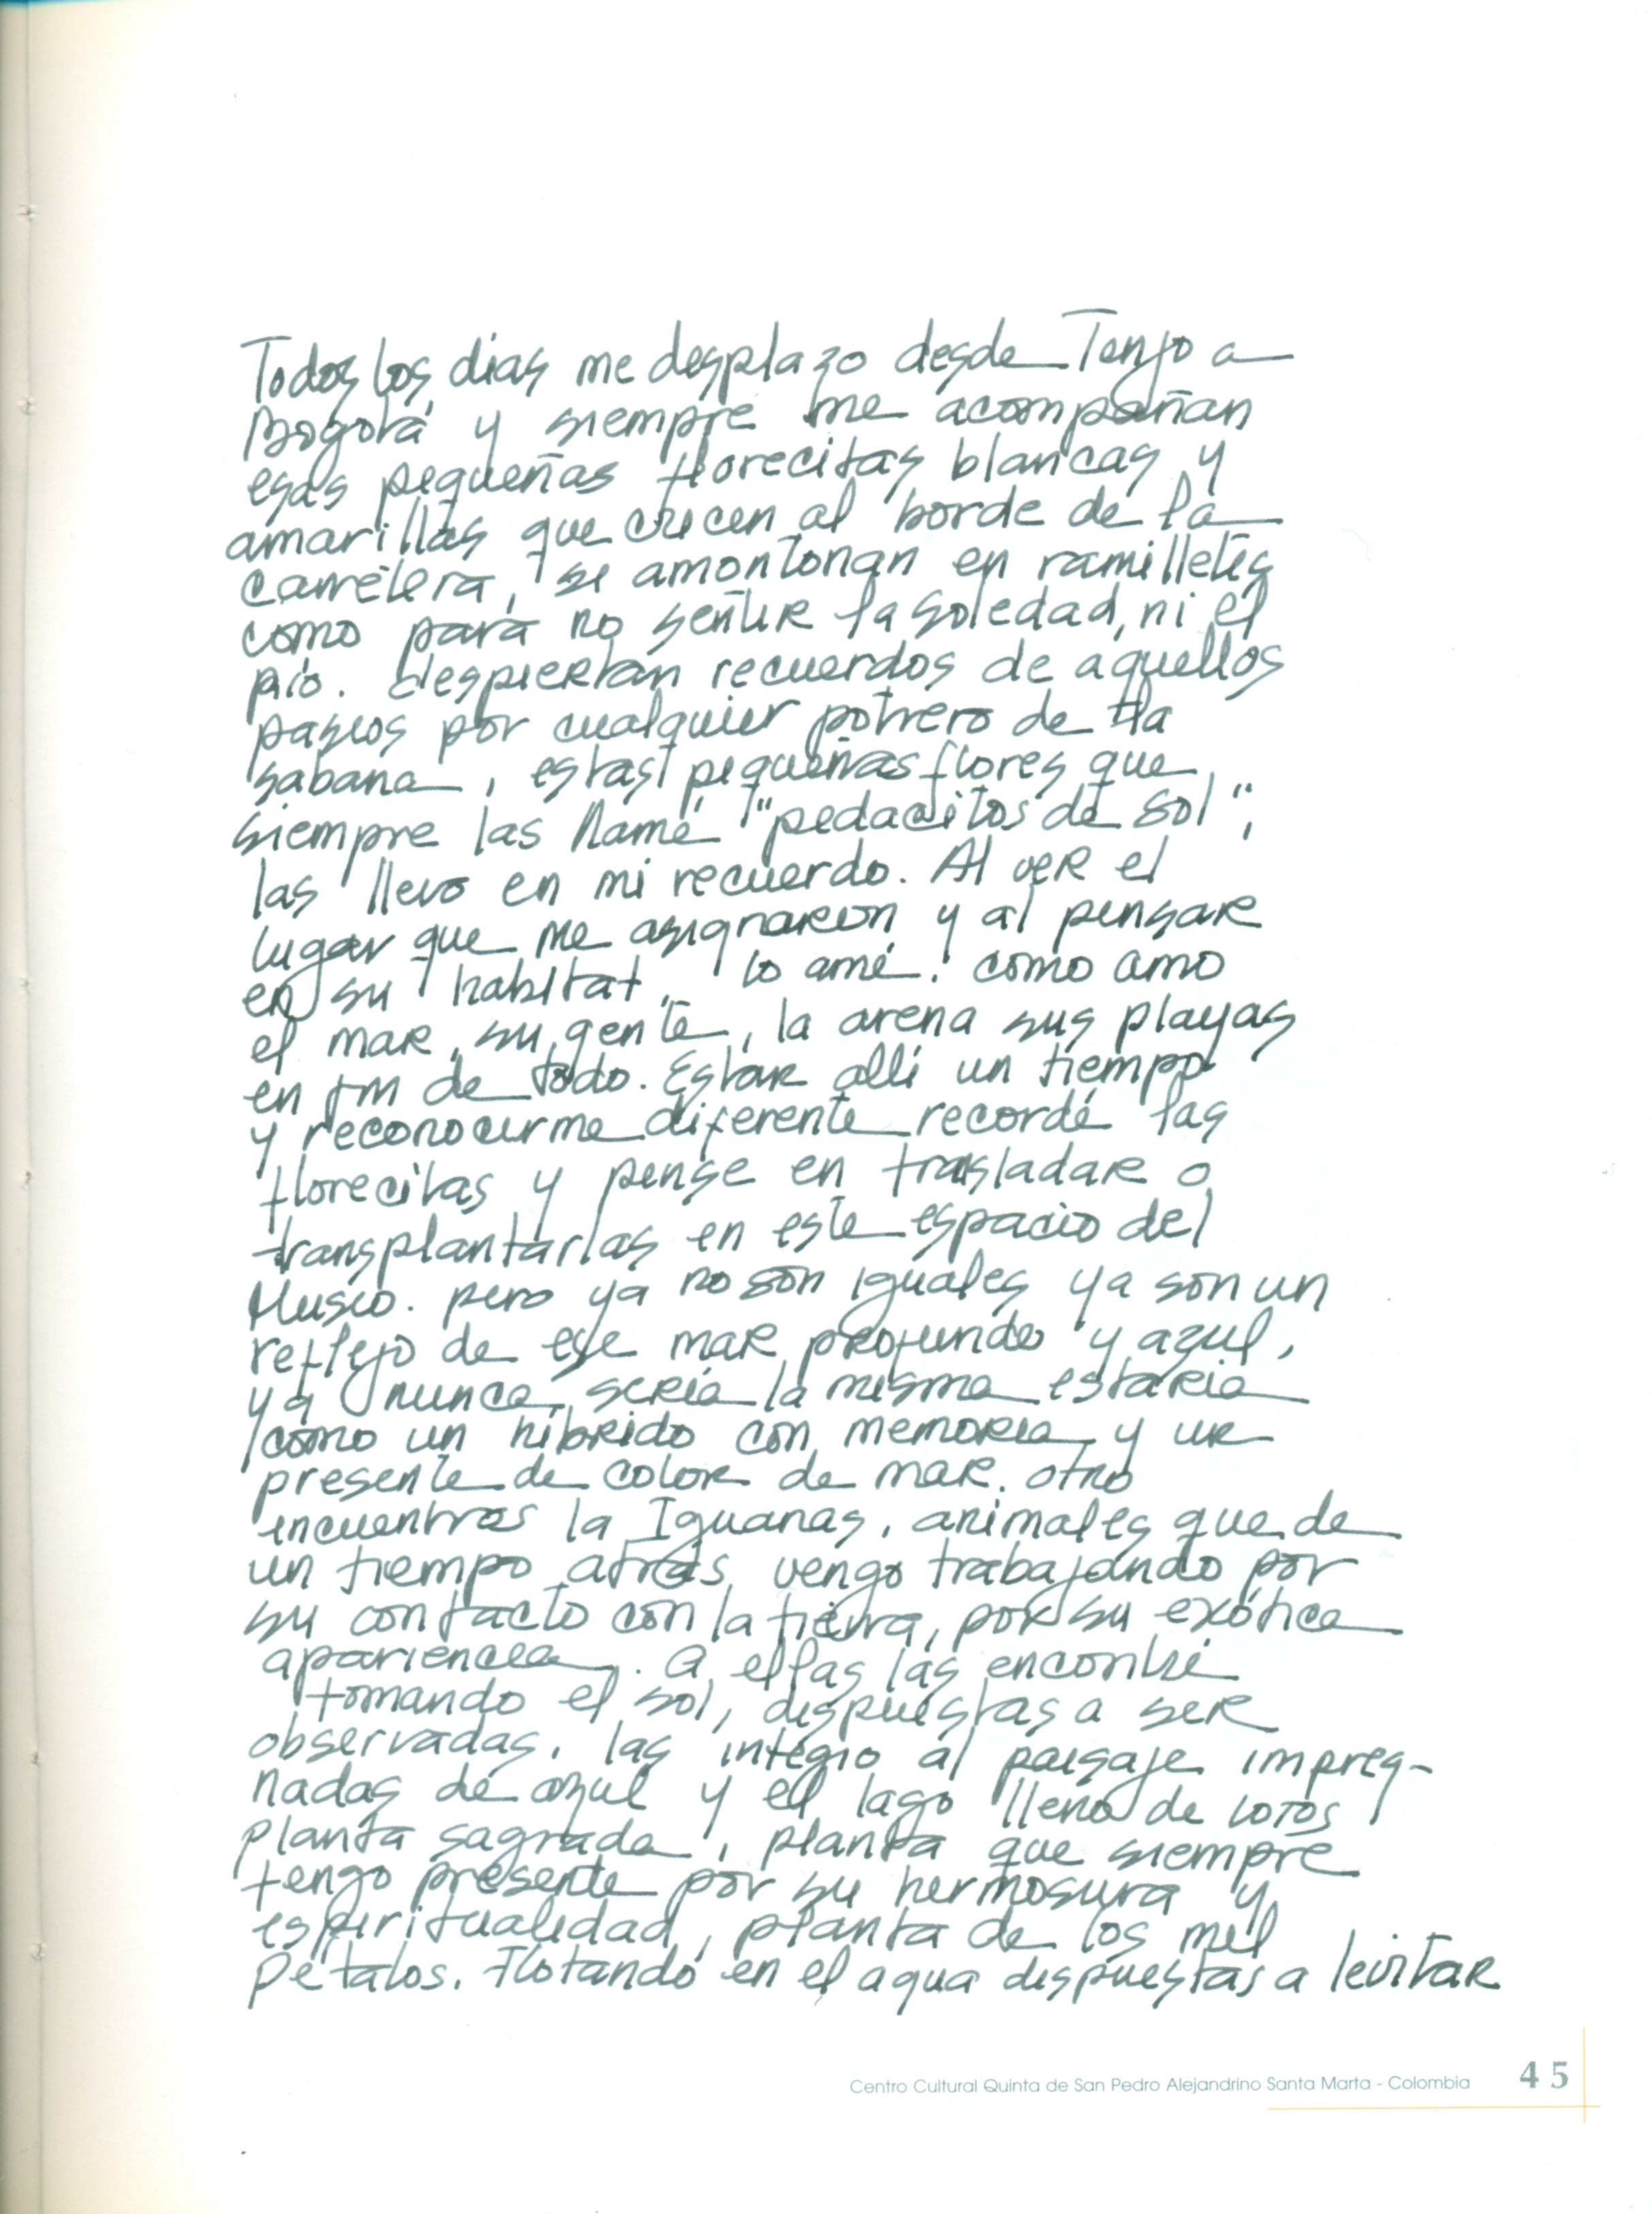 Todos los dias me desplazo desde Tenjo a
Bogotá y siempre me acompañan
esas pequeñas florecitas blancas y
amarillas que crecen al borde de la
carretera, se amontonan en ramilletes
como para no sentir la soledad, ni el
frío. despiertan recuerdos de aquellos
paseos por cualquier potrero de la
sabana, estas pequeñas flores que
siempre las llamé "pedacitos de sol",
las llevo en mi recuerdo. Al ver el
lugar que me asignaron y al pensar
en su habitat, lo amé. como amo
el mar, su gente, la arena sus playas
en fin de todo. Estar allí un tiempo
y reconocerme diferente recordé las
florecitas y pense en trasladar o
transplantarlas en este espacio del
Museo. pero ya no son iguales ya son un
reflejo de ese mar profundo y azul,
ya nunca sería la misma estaria
como un hibrido con memoria y un
presente de color de mar. otro
encuentros la Iguanas, animales que de
un tiempo atrás vengo trabajando por
su contacto con la tierra, por su exótica
apariencia. a ellas las encontré
tomando el sol, dispuestas a ser
observadas, las integro al paisaje impreg-
nadas de azul y el lago lleno de lotos
planta sagrada, planta que siempre
tengo presente por su hermosura y
espiritualidad, planta de los mil
pétalos. Flotando en el agua dispuestas a levitar
Centro Cultural Quinta de San Pedro Alejandrino Santa Marta - Colombia 45